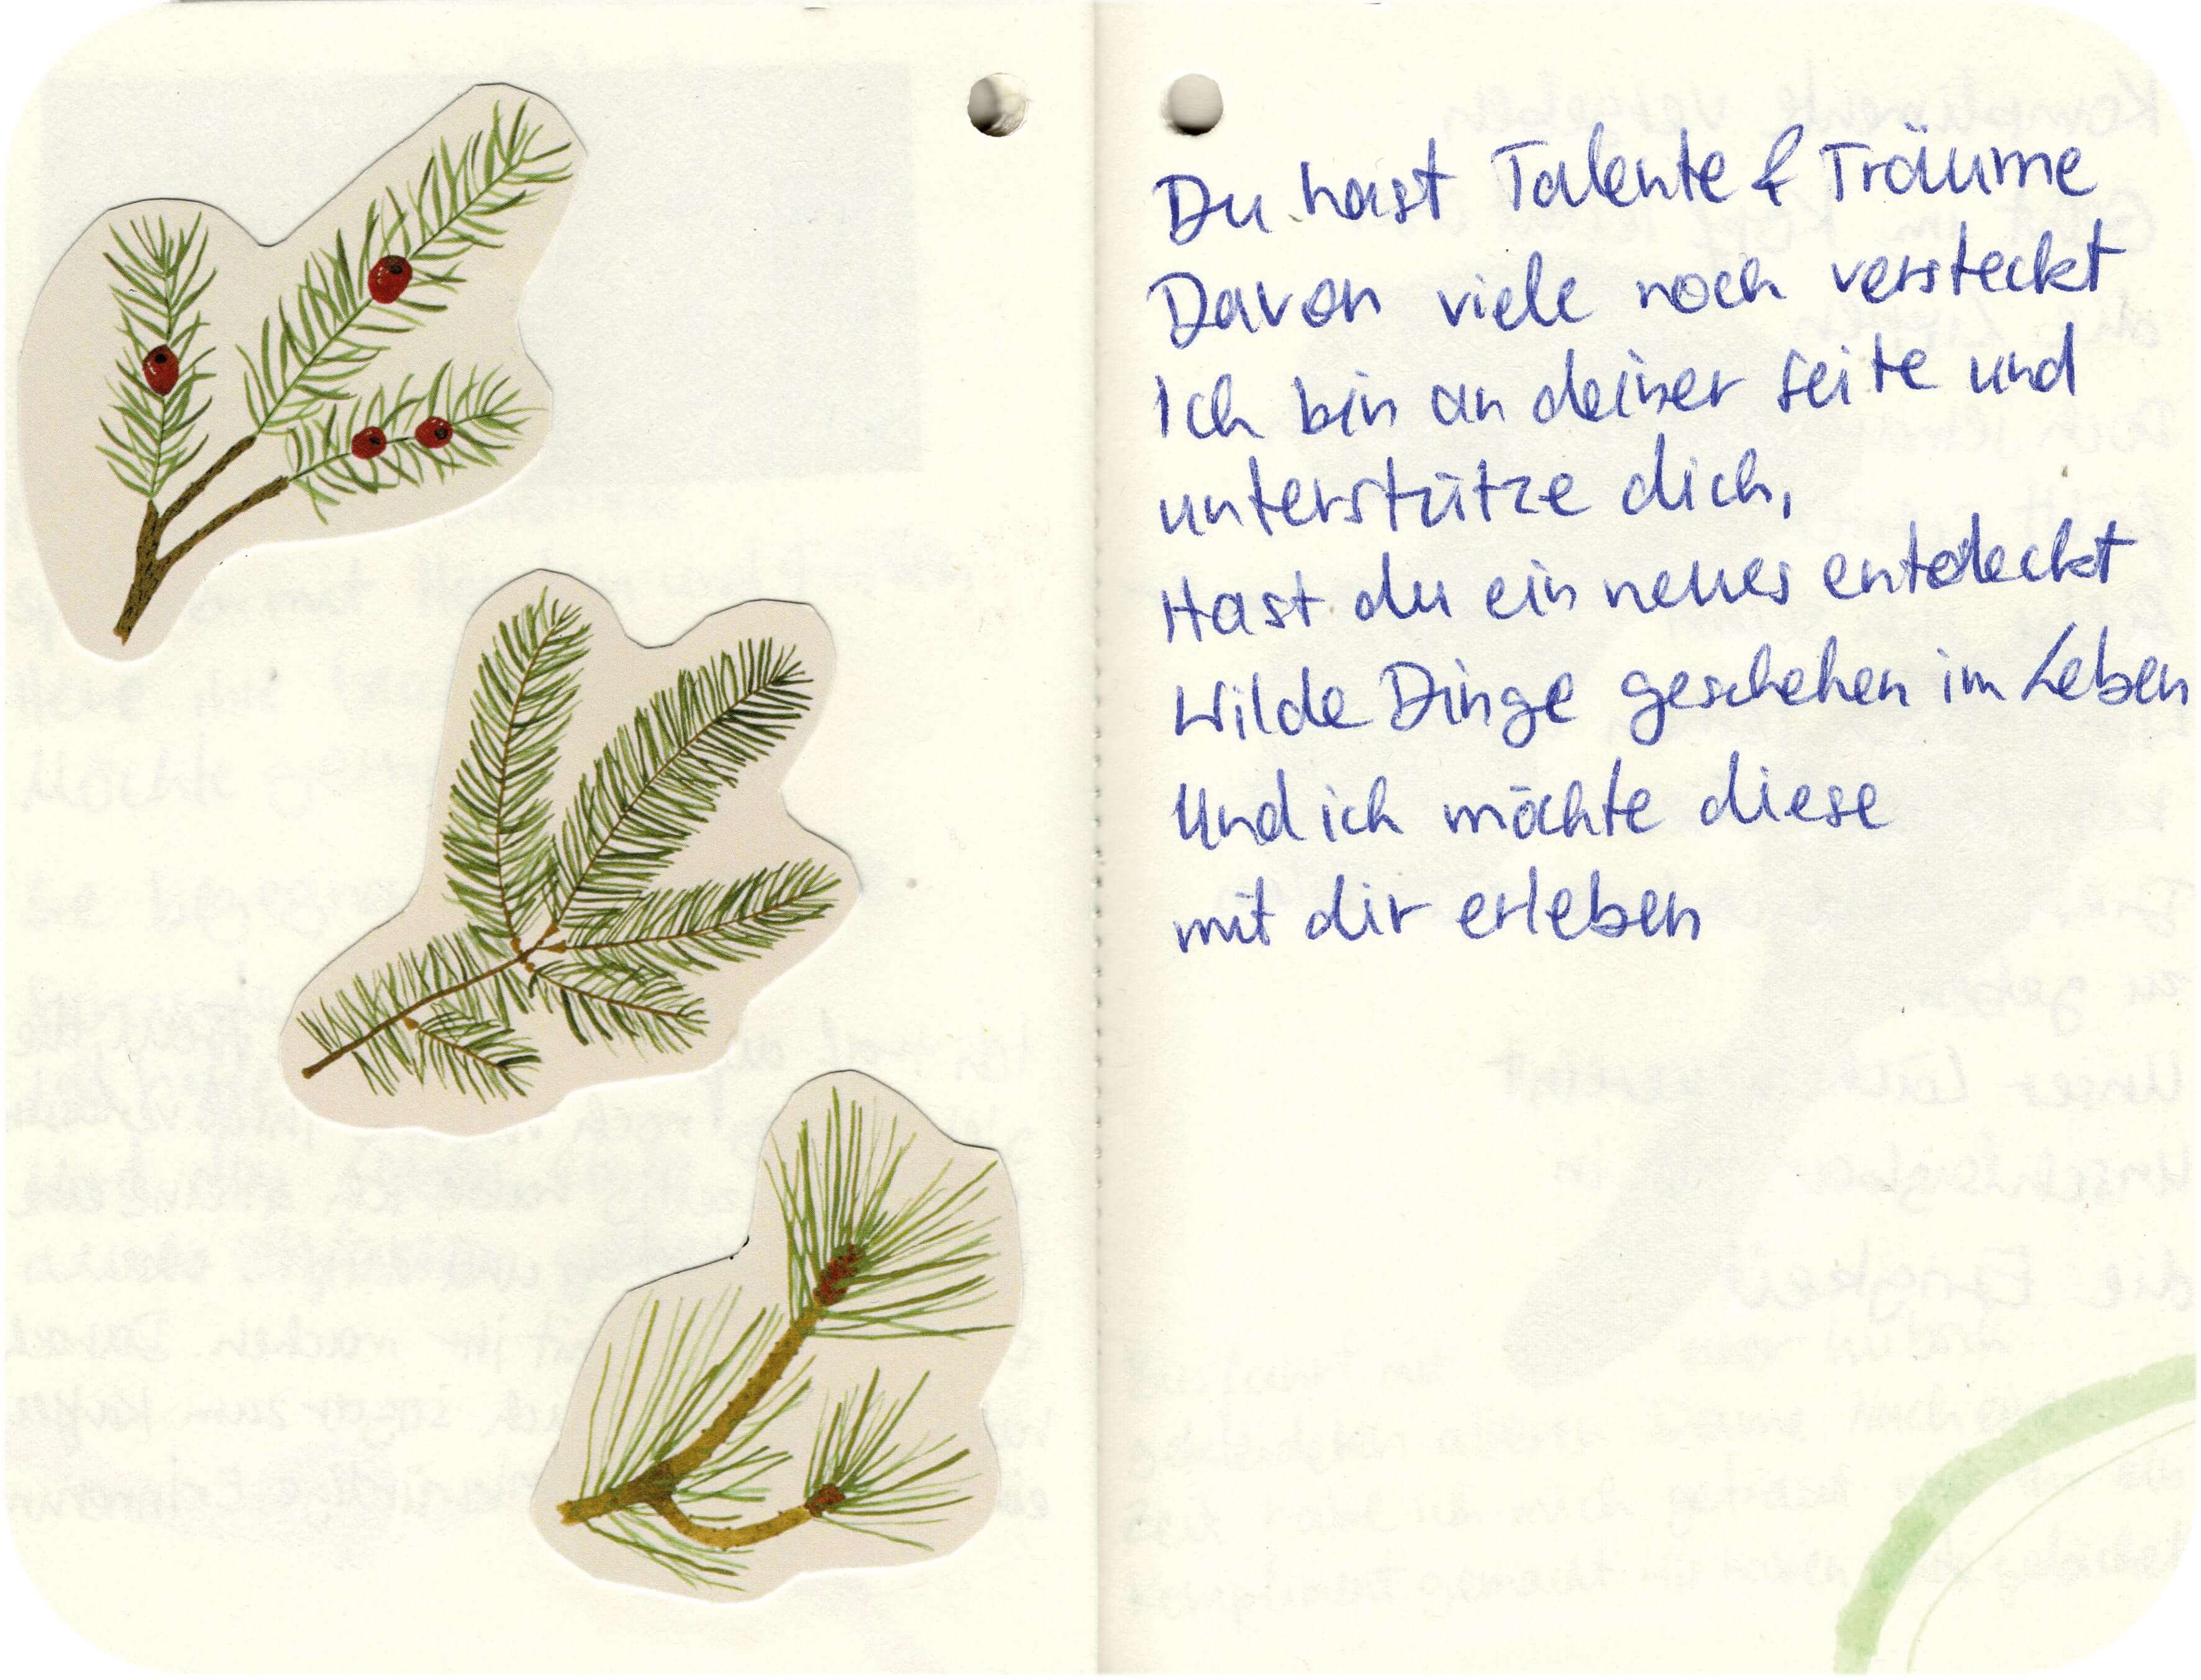 Du hast Talente & Träume
Davon viele noch versteckt
Ich bin an deiner Seite und
unterstütze dich,
Hast du ein neues entdeckt
Wilde Dinge geschehen im Leben
Und ich möchte diese
mit dir erleben